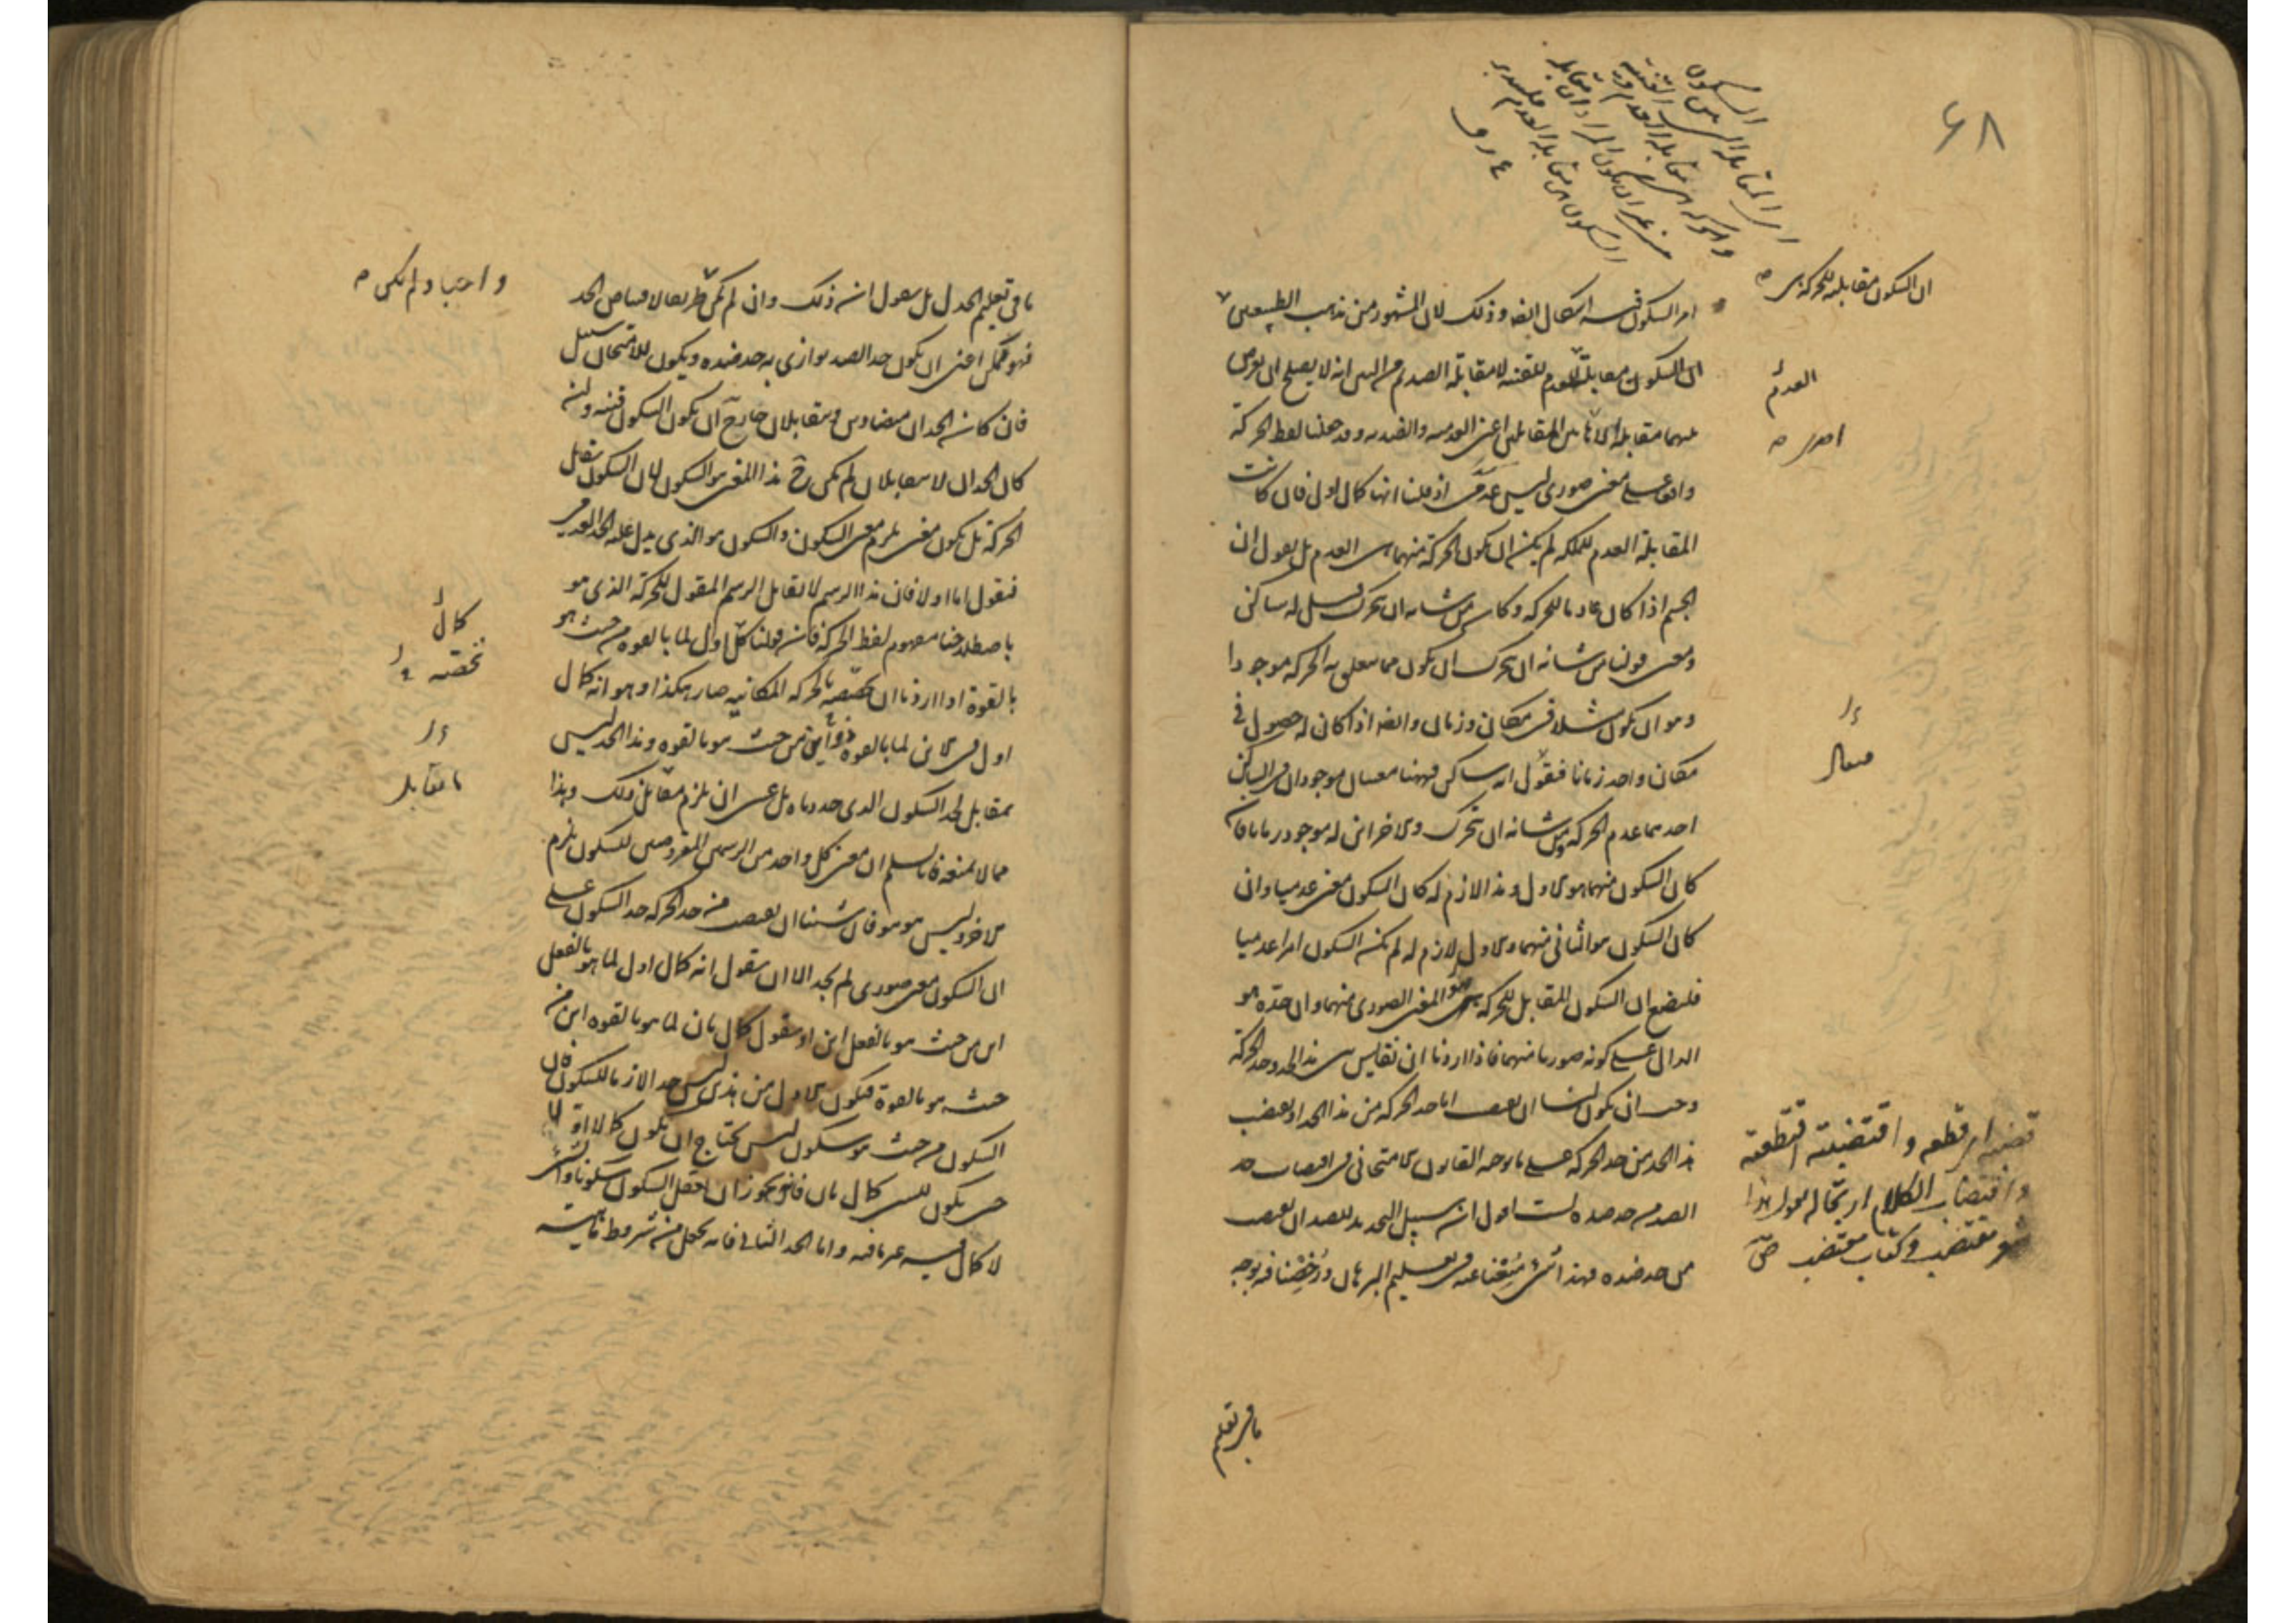 ٦٨
السكون
ان السكون مقابلة للحركة هى
امر السكون فيه اشكال ايضا وذلك لان المشهور من مذهب الطبيعيين
ان السكون مقابلته العدم للقنية لا مقابلة الضد ومن البين انه لا يصلح ان يعرض
العدم
بينهما مقابلة الا هاتين المقابلتين اعنى العدمية والضدية وقد جعلنا لفظ الحركة
واقعا على معنى صورى ليس عدمى اذ قلنا انها كمال اول فان كانت
المقابلة العدم للملكة لم يمكن ان يكون الحركة منهما هى العدم بل نقول ان
الجسم اذا كان عادما للحركة وكان من شانه ان يتحرك قيل له ساكن
ومعنى قولنا من شانه ان يتحرك ان يكون مما يتعلق به الحركة موجودا
وهو ان يكون مثلا فى مكان وزمان وايضا اذا كان له حصول فى
مكان واحد زمانا فنقول انه ساكن فههنا معنيان موجودان فى الساكن
احدهما عدم الحركة ومن شانه ان يتحرك والاخر اين له موجود زمانا فان
كان السكون منهما هو الاول وهذا لازم له كان السكون معنى عدميا وان
كان السكون هو الثانى منهما والاول لازم له لم يكن السكون امرا عدميا
فلنضع ان السكون المقابل للحركة هو المعنى الصورى منهما وان حده هو
الدال على كونه صوريا منهما فاذا اردنا ان نقايس بين هذا الحد وحد الحركة
وجب ان يكون لنا ان نقتضب اما حد الحركة من هذا الحد او نقتضب
هذا الحد من حد الحركة على ما يوجبه القانون الامتحانى فى اقتضاب حد
الضد من حد ضده لست اقول ان سبيل التحديد للضد ان يقتضب
من حد ضده فهذا شئ منعنا عنه فى تعليم البرهان ورخصنا فيه بوجه
قضبه اى قطعه واقتضبته اقتطعته
واقتضاب الكلام ارتجاله يقول هذا
شعر مقتضب وكتاب مقتضب ص
ما فى تعليم
ما فى تعليم الجدل بل نقول ان ذلك وان لم يكن طريقا لاقتناص الحد
واجبا ولم يكن
فهو ممكن اعنى ان يكون حد الضد يوازى به حد ضده ويكون للامتحان سبيل
فان كان الحدان متضادين ومتقابلان جاز ح ان يكون السكون قنية وان
كان الحدان لا يتقابلان لم يكن ح هذا المعنى هو السكون لان السكون مقابل
الحركة بل يكون معنى يلزم معنى السكون والسكون هو الذى يدل عليه الحد العدمى
فنقول اما اولا فان هذا الرسم لا يقابل الرسم المقول للحركة الذى هو
باصطلاحنا مفهوم لفظ الحركة فان قولنا كمال اول لما بالقوة من حيث هو
كمال
بالقوة اذا اردنا ان نخصصه بالحركة المكانية صار هكذا وهو انه كمال
نخصه
اول فى الاين لما بالقوة ذو اين من حيث هو بالقوة وهذا الحد ليس
بمقابل لحد السكون الذى حددناه بل عسى ان يلزم مقابل ذلك وهذا
ما يقابل
مما لا نمنعه فانا نسلم ان معنى كل واحد من الرسمين المفروضين للسكون يلزم
الاخر وليس هو هو فان شئنا ان نقتضب من حد الحركة حد السكون على
ان السكون معنى صورى لم نجد الا ان نقول انه كمال اول لما هو بالفعل
اين من حيث هو بالفعل اين او نقول كمال ثان لما هو بالقوة اين من
حيث هو بالقوة فيكون الاول من هذين ليس حدا لازما للسكون فان
السكون من حيث هو سكون ليس يحتاج ان يكون كمالا اولا
حتى يكون للشئ كمال ثان فانه يجوز ان نعقل السكون سكونا والشئ
لا كمال فيه غير ما فيه واما الحد الثانى فانه يجعل من شروط ماهية